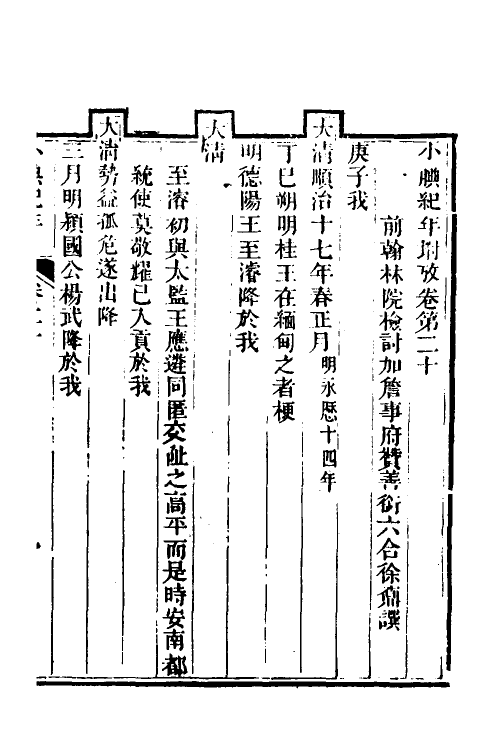 小腆紀年附攷卷第二十
前翰林院檢討加詹事府贊善銜六合徐鼒譔
庚子我
大清順治十七年春正月明永厯十四年
丁巳朔明桂王在緬甸之者梗
明德陽王至濬降於我
大清
至濬初與太監王應遴同匿交阯之高平而是時安南都
統使莫敬耀已入貢於我
大淸勢益孤危遂出降
三月明潁國公楊武降於我
小腆紀年 卷二十